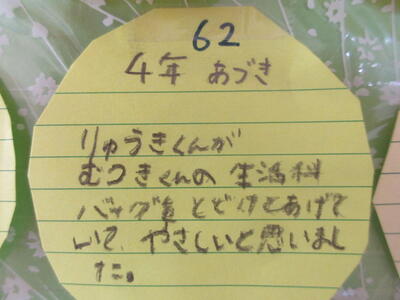 62
4年 あづき
りゅうきくんが
むつきくんの 生活科
バッグを とどけてあげて
いて、やさしいと思いまし
た。